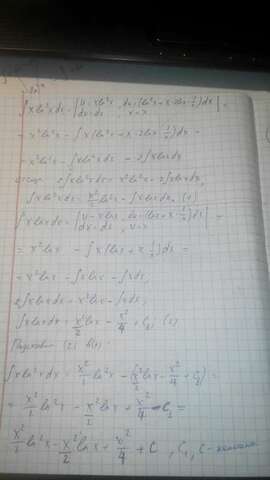 ∫x ln²x dx = | u = x ln²x, du = (ln²x + x·2lnx·1/x)dx; dv = dx, v = x | =
= x² ln²x - ∫x(ln²x + x·2lnx·1/x)dx =
= x² ln²x - ∫x ln²x dx - 2∫x lnx dx
2∫x ln²x dx = x² ln²x - 2∫x lnx dx,
∫x ln²x dx = x²/2 ln²x - ∫x lnx dx. (1)
∫x lnx dx = | u = x lnx, du = (lnx + x·1/x)dx; dv = dx, v = x | =
= x² lnx - ∫x (lnx + x·1/x)dx =
= x² lnx - ∫x lnx - ∫x dx,
2∫x lnx dx = x² lnx - ∫x dx,
∫x lnx dx = x²/2 lnx - x²/4 + C₁. (2)
(2) в (1):
∫x ln²x dx = x²/2 ln²x - (x²/2 lnx - x²/4 + C₁) =
= x²/2 ln²x - x²/2 lnx + x²/4 - C₁ =
x²/2 ln²x - x²/2 lnx + x²/4 + C, C₁, C -